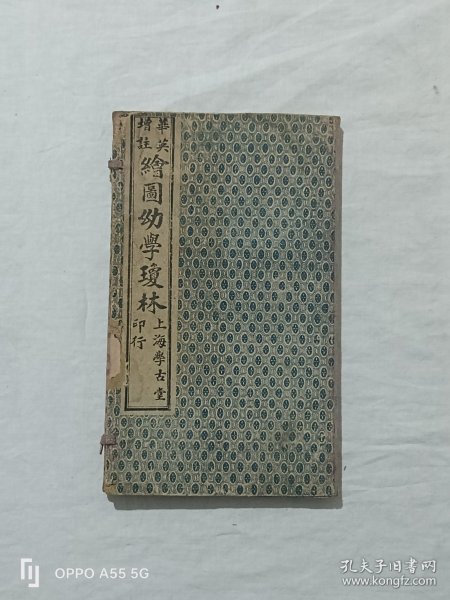 華英
增註
繪圖幼學瓊林
上海學古堂
印行
OPPO A55 5G
孔夫子旧书网
www.kongfz.com